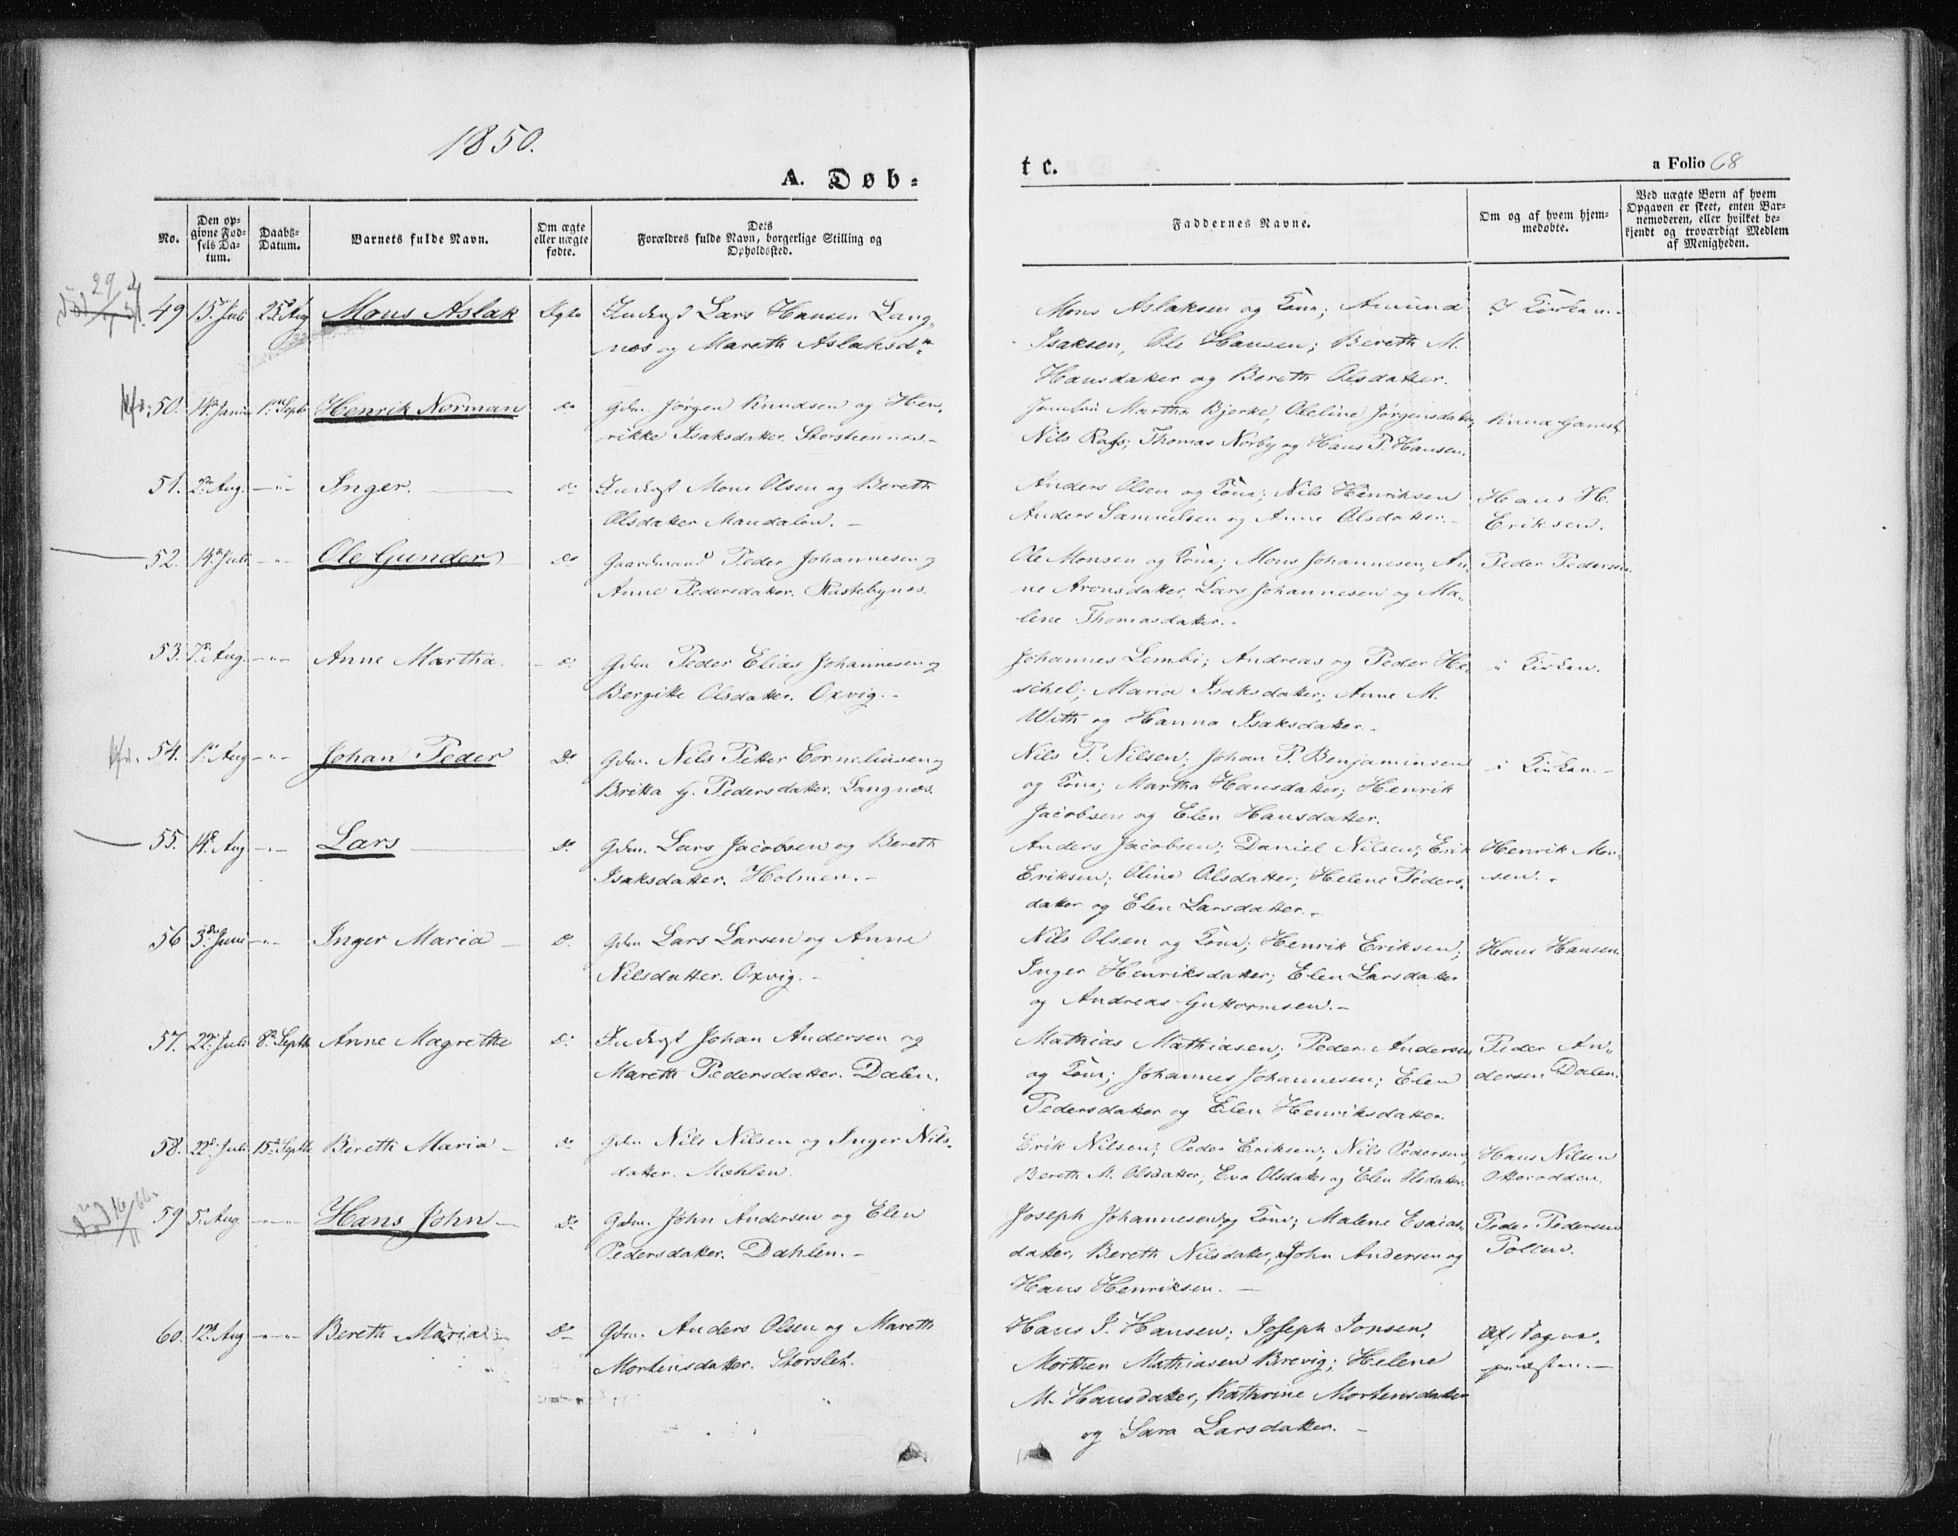 1850.
A. Døb-
te.
a Folio 68
No.
Den op-
givne Fød-
sels Da-
tum.
Daabs-
Datum.
Barnets fulde Navn.
Om ægte
eller uægte
fødte.
Dets
Forældres fulde Navn, borgerlige Stilling og
Opholdssted.
Faddernes Navne.
Om og af hvem hjem-
medøbte.
Ved uægte Børn af hvem
Opgaven er skeet, enten Bar-
nemoderen, eller hvilket be-
kjendt og troværdigt Medlem
af Menigheden.
49 15de Juli 25de Aug Mons Aslak Ægte
Lars Hansen Lang-
næs og Mareth Aslaksd.
Mons Aslaksen og Kone; Amund
Isaksen, Ole Hansen; Bereth M.
Hansdatter og Bereth Olsdatter.
I Kirken.
50. 14de Juni 1ste Septbr Henrik Norman do
Gdm. Jørgen Knudsen og Hen-
rikke Isaksdatter. Storsteennæs.
Jomfru Martha Bjerke, Oleline Jørgensdatter,
Nils ; Thomas Norby og Hans P. Hansen.
Knud
51. 2den Aug. -"- Inger. do
Mons Olsen og Bereth
Olsdatter Mandalen. -
Anders Olsen og Kone; Nils Henriksen
Anders Samuelsen og Anne Olsdatter. -
Hans H.
Eriksen.
52. 14de Juli -"- Ole Gunder do
Gaardmand Peder Johannesen og
Anne Pedersdatter. Rastebynæs.
Ole Monsen og Kone; Mons Johannesen, An-
ne Aronsdatter, Lars Johannesen og Ma-
lene Thomasdatter. -
Peder Pedersen
53. 7de Aug. -"- Anne Martha. do
Gdm Peder Elias Johannesen og
Bergitte Olsdatter. Oxvig. -
Johannes Lembi; Andreas og Peder He-
schel; Maria Isaksdatter; Anne M.
With og Hanna Isaksdatter. -
i Kirken.
54. 1ste Aug -"- Johan Peder Do
Gdm. Nils Petter Corneliusen og
Britta g. Pedersdatter. Langnæs.
Nils P. Nilsen; Johan P. Benjaminsen
og Kone; Martha Hansdatter; Henrik
Jacobsen og Elen Hansdatter.
i Kirken. -
55. 14de Aug -"- Lars Do
Gdm. Lars Jacobsen og Bereth
Isaksdatter. Holmen. -
Anders Jacobsen; Daniel Nilsen; Erik
Eriksen; Olina Olsdatter; Helene Peders-
datter og Elen Larsdatter. -
Henrik Mon-
sen. -
56 3de Juni -"- Inger Maria - Do
Gdm Lars Larsen og Anne
Nilsdatter. Oxvig. -
Nils Olsen og Kone; Henrik Eriksen;
Inger Henriksdatter; Elen Larsdatter
og Andreas Guttormsen. -
Hans Hansen
57. 22de Juli 8de Septbr Anne Magrethe Do
Johan Andersen og
Mareth Pedersdatter. Dalen.
Mathias Mathiasen; Peder Andersen
og Kone; Johannes Johannesen; Elen
Pedersdatter og Elen Henriksdatter.
Peder An-
dersen Dalen.
58. 22de Juli 15de Septbr Bereth Maria - Do
Gdm Nils Nilsen og Inger Nils-
datter. Mohlen.
Erik Nilsen; Peder Eriksen; Nils Pedersen,
Bereth M. Olsdatter; Eva Olsdatter og Elen Olsdatter.
Hans Nilsen
Otterodden.
59 5te Aug -"- Hans John - Do
Gdm. John Andersen og Elen
Pedersdatter. Dahlen. -
Joseph Johannesen og Kone; Malene Esaias-
datter, Bereth Nilsdatter, John Andersen og
Hans Henriksen. -
Peder Pedersen
Pollen.
60. 12te Aug -"- Bereth Maria - Do
Gdm. Anders Olsen og Mareth
Mortensdatter. Storslet.
Hans J. Hansen; Joseph Jonsen,
Morthen Mathiasen Brevig; Helene
M. Hansdatter, Kathrine Mortensdatter
og Sara Larsdatter. -
Af Sogne-
præsten. -